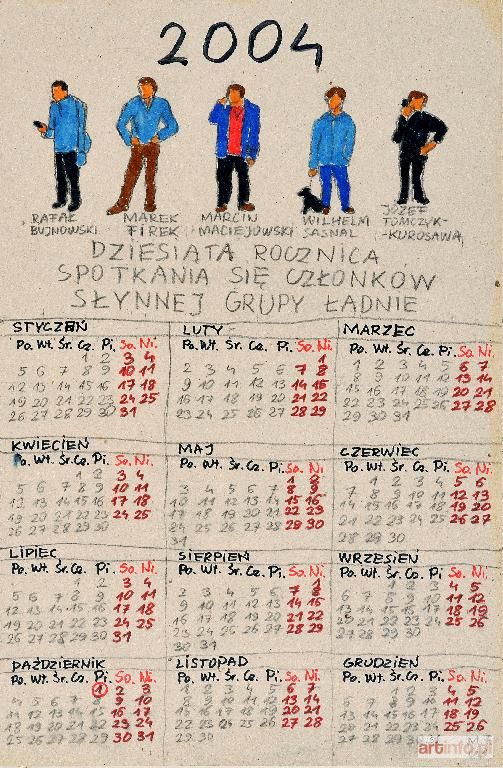 2004
RAFAŁ
BUJNOWSKI
MAREK
FIREK
MARCIN
MACIEJOWSKI
WILHELM
SASNAL
JÓZEF
TOMCZYK-
-KUROSAWA
DZIESIĄTA ROCZNICA
SPOTKANIA SIĘ CZŁONKÓW
SŁYNNEJ GRUPY ŁADNIE
STYCZEŃ
Po. Wt. Śr. Cz. Pi. So. Ni.
1 2 3 4
5 6 7 8 9 10 11
12 13 14 15 16 17 18
19 20 21 22 23 24 25
26 27 28 29 30 31
LUTY
Po. Wt. Śr. Cz. Pi. So. Ni.
1
2 3 4 5 6 7 8
9 10 11 12 13 14 15
16 17 18 19 20 21 22
23 24 25 26 27 28 29
MARZEC
Po. Wt. Śr. Cz. Pi. So. Ni.
1 2 3 4 5 6 7
8 9 10 11 12 13 14
15 16 17 18 19 20 21
22 23 24 25 26 27 28
29 30 31
KWIECIEŃ
Po. Wt. Śr. Cz. Pi. So. Ni.
1 2 3 4
5 6 7 8 9 10 11
12 13 14 15 16 17 18
19 20 21 22 23 24 25
26 27 28 29 30
MAJ
Po. Wt. Śr. Cz. Pi. So. Ni.
1 2
3 4 5 6 7 8 9
10 11 12 13 14 15 16
17 18 19 20 21 22 23
24 25 26 27 28 29 30
31
CZERWIEC
Po. Wt. Śr. Cz. Pi. So. Ni.
1 2 3 4 5 6
7 8 9 10 11 12 13
14 15 16 17 18 19 20
21 22 23 24 25 26 27
28 29 30
LIPIEC
Po. Wt. Śr. Cz. Pi. So. Ni.
1 2 3 4
5 6 7 8 9 10 11
12 13 14 15 16 17 18
19 20 21 22 23 24 25
26 27 28 29 30 31
SIERPIEŃ
Po. Wt. Śr. Cz. Pi. So. Ni.
1
2 3 4 5 6 7 8
9 10 11 12 13 14 15
16 17 18 19 20 21 22
23 24 25 26 27 28 29
30 31
WRZESIEŃ
Po. Wt. Śr. Cz. Pi. So. Ni.
1 2 3 4 5
6 7 8 9 10 11 12
13 14 15 16 17 18 19
20 21 22 23 24 25 26
27 28 29 30
PAŹDZIERNIK
Po. Wt. Śr. Cz. Pi. So. Ni.
1 2 3
4 5 6 7 8 9 10
11 12 13 14 15 16 17
18 19 20 21 22 23 24
25 26 27 28 29 30 31
LISTOPAD
Po. Wt. Śr. Cz. Pi. So. Ni.
1 2 3 4 5 6 7
8 9 10 11 12 13 14
15 16 17 18 19 20 21
22 23 24 25 26 27 28
29 30
GRUDZIEŃ
Po. Wt. Śr. Cz. Pi. So. Ni.
1 2 3 4 5
6 7 8 9 10 11 12
13 14 15 16 17 18 19
20 21 22 23 24 25 26
27 28 29 30 31
artinfo.pl